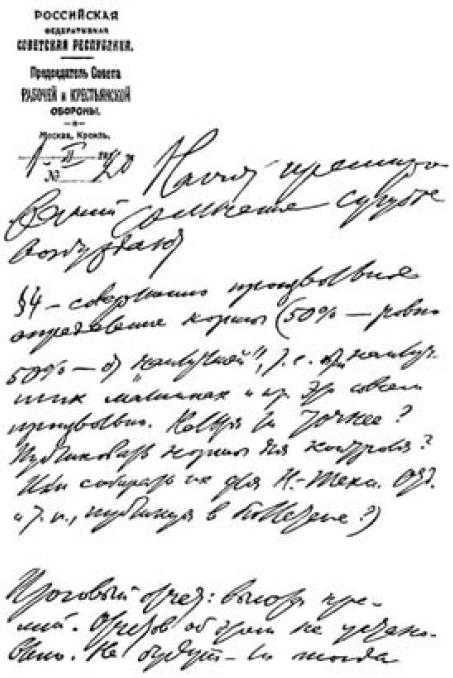 РОССИЙСКАЯ
ФЕДЕРАТИВНАЯ
СОВЕТСКАЯ РЕСПУБЛИКА.
Председатель Совета
РАБОЧЕЙ и КРЕСТЬЯНСКОЙ
ОБОРОНЫ.
Москва, Кремль.
1 II 1920
№
премиро-
ваний сугубые
возбуждают
§4 – совершенно произвольное
определение нормы (50% – ровно
50% – от „наилучшей“, т. е. от наилуч-
ших машинах и пр. Это совсем
произвольно. Нельзя ли точнее?
Публиковать нормы для контроля?
Или собирать их для Н.-Техн. Отд.
и т. п., публикуя в бюллетене?)
Итоговый отчет: выдача пре-
мий. Отчетов об этом не устано-
влено. Не будут-ли тогда